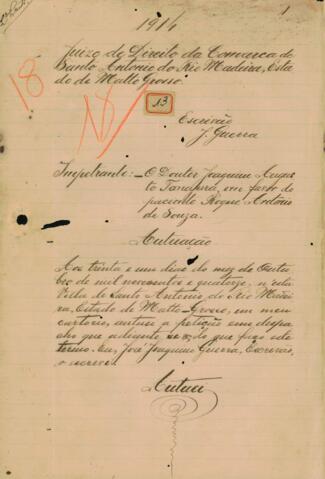 1
1914
Juizo de Direito da Comarca de
Santo Antonio do Rio Madeira, Esta
do de Matto Grosso.
18
13
18
Escrivão
J. Guerra
Impetrante:- O Doutor Joaquim Augus
to Tanajura, em favor do
paciente Roque Antonio
de Souza.
Autuação
Aos trinta e um dias do mez de Outu
bro de mil novecentos e quatorze, n'esta
Villa de Santo Antonio do Rio Madei
ra, Estado de Matto-Grosso, em meu
cartorio, autuo a petição com despa
cho que adiante se vê, do que faço este
termo. Eu, José Joaquim Guerra, Escrivão,
o escrevi.
Autuei